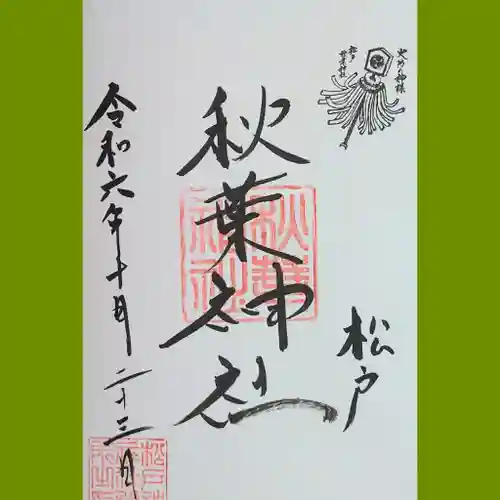 火防の神様
松戸
秋葉神社
松戸
秋葉神社
令和六年十月二十三日